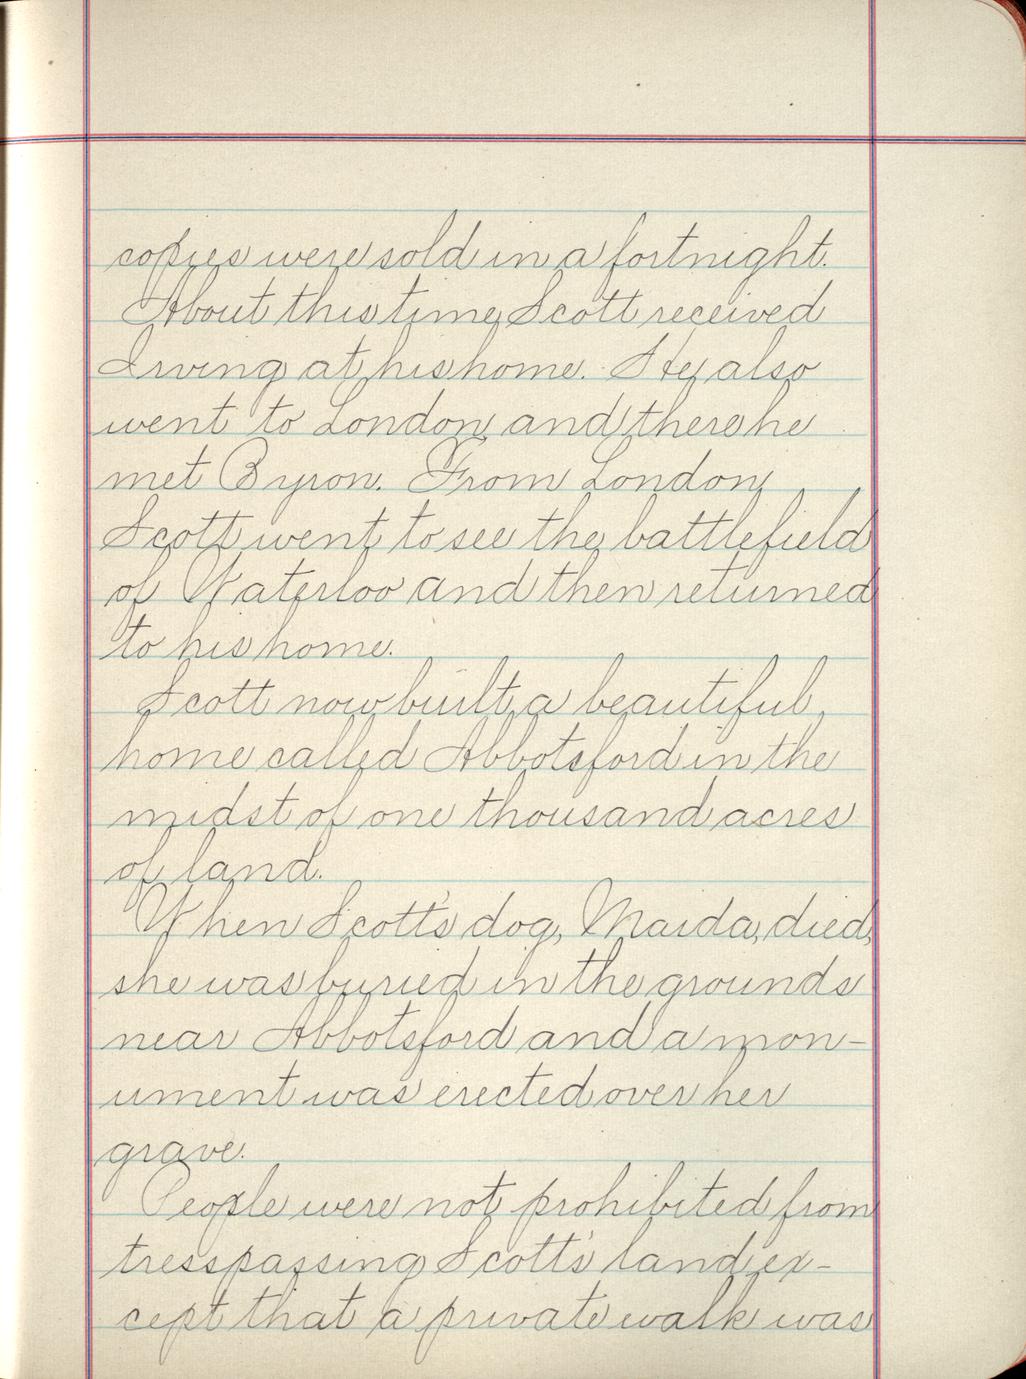 copies were sold in a fortnight.
About this time Scott received
Irving at his home. He also
went to London and there he
met Byron. From London
Scott went to see the battlefield
of Waterloo and then returned
to his home.
Scott now built a beautiful
home called Abbotsford in the
midst of one thousand acres
of land.
When Scott's dog, Maida, died,
she was buried in the grounds
near Abbotsford and a mon-
ument was erected over her
grave.
People were not prohibited from
tresspassing Scott's land ex-
cept that a private walk was